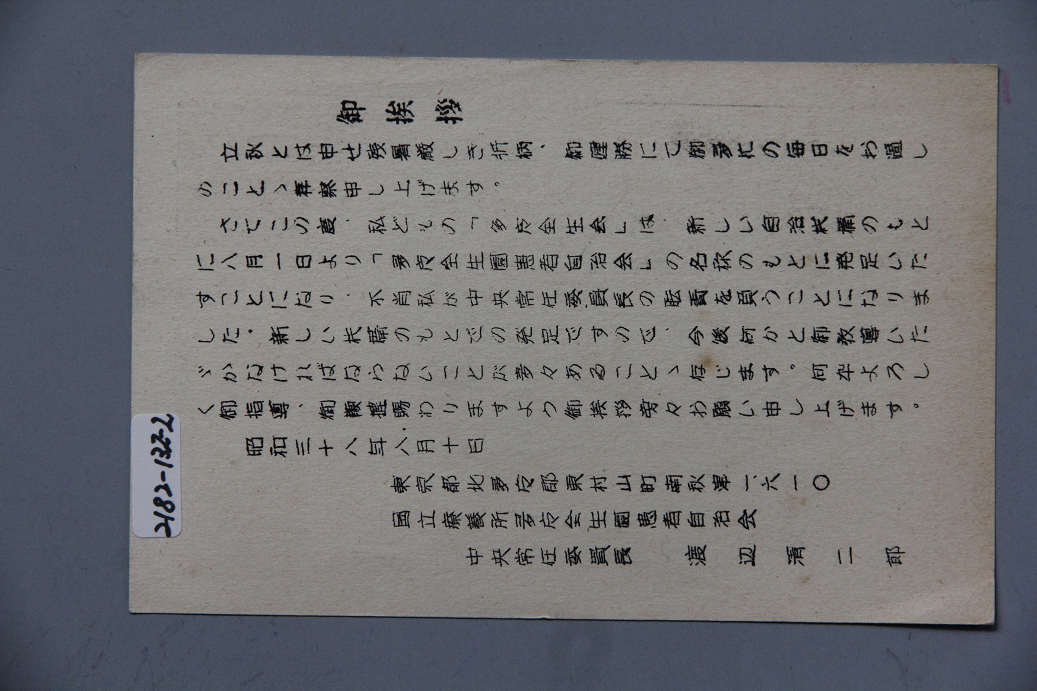 御挨拶
立秋とは申せ残暑厳しき折柄、御健勝にて御多忙の毎日をお過し
のことゝ拝察申し上げます。
さてこの度、私どもの「多磨全生会」は、新しい自治機構のもと
に八月一日より「多磨全生園患者自治会」の名称のもとに発足いた
すことになり、不肖私が中央常任委員長の重責を負うことになりま
した。新しい機構のもとでの発足ですので、今後何かと御教導いた
ゞかなければならないことが多々あることゝ存じます。何卒よろし
く御指導、御鞭撻賜わりますよう御挨拶旁々お願い申し上げます。
昭和三十八年八月十日
東京都北多摩郡東村山町南秋津一、六一〇
国立療養所多磨全生園患者自治会
中央常任委員長 渡辺清二郎
2182-132-2